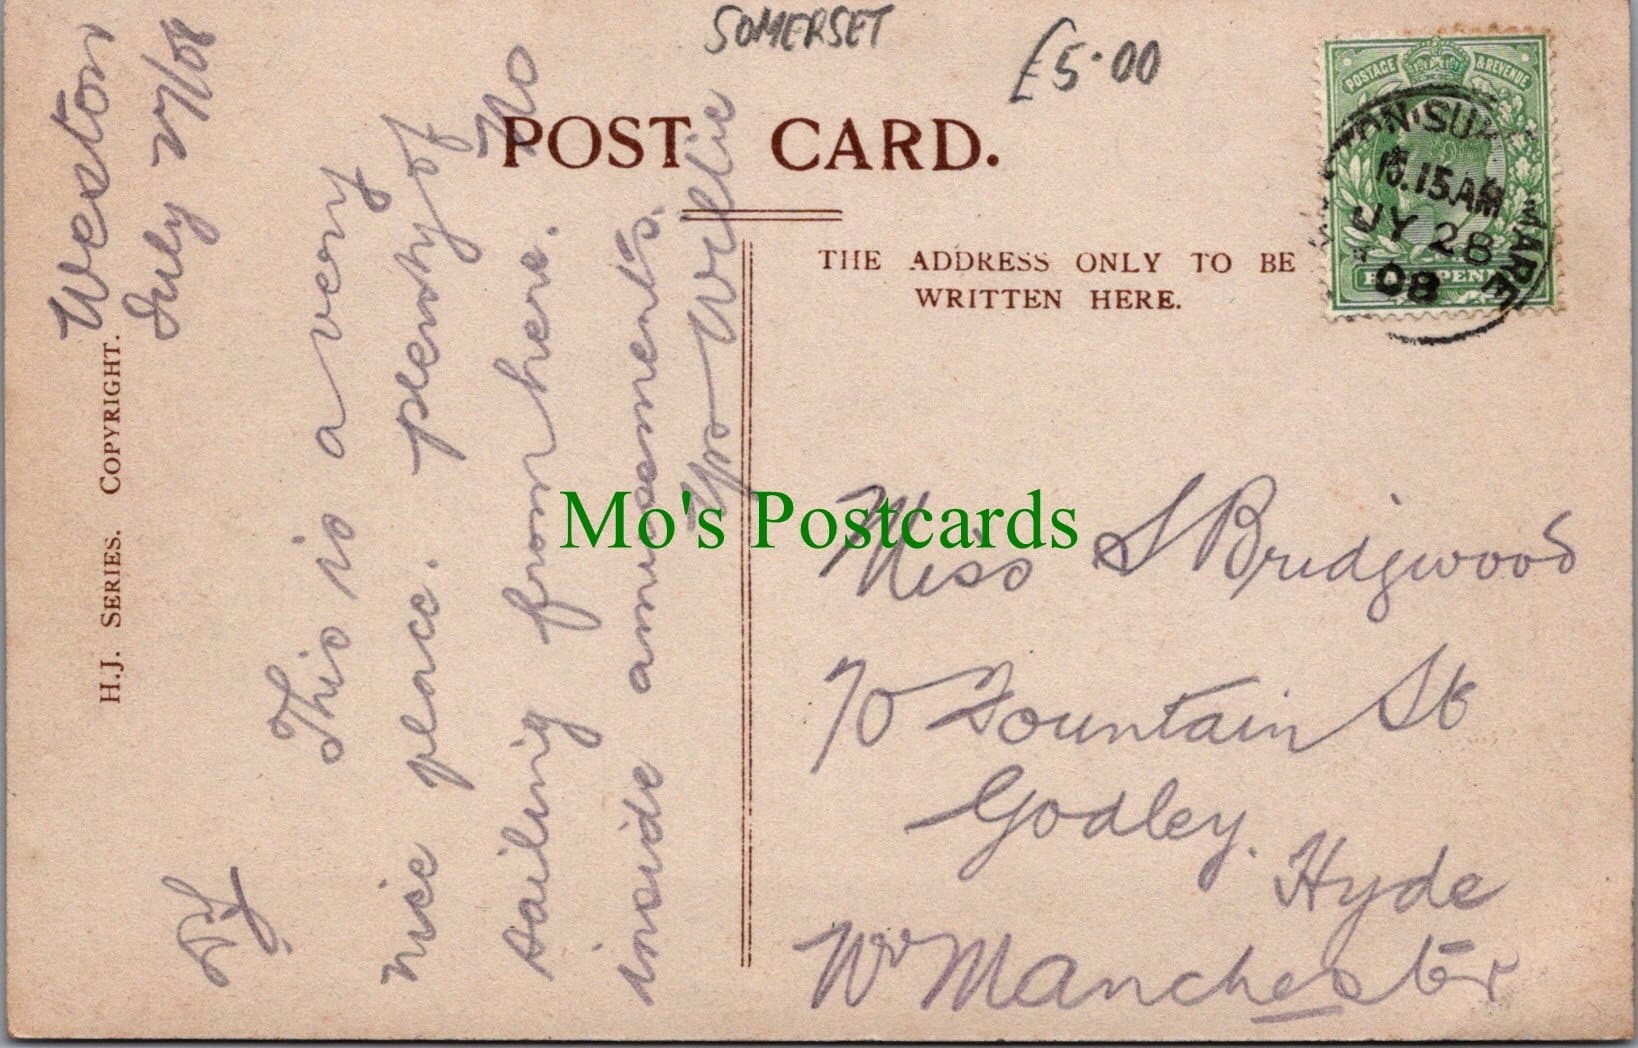 SOMERSET
£5.00
POST CARD.
THE ADDRESS ONLY TO BE
WRITTEN HERE.
POSTAGE & REVENUE
HALFPENNY
10.15AM
JY 28
08
MARE
H.J. SERIES. COPYRIGHT.
Weston
July 27/08
This is a very
nice place. plenty of
sailing from here. No
inside amusements.
Yrs Willie
Mo's Postcards
Miss S Bridgwood
70 Fountain St
Godley.
Hyde
Nr Manchester